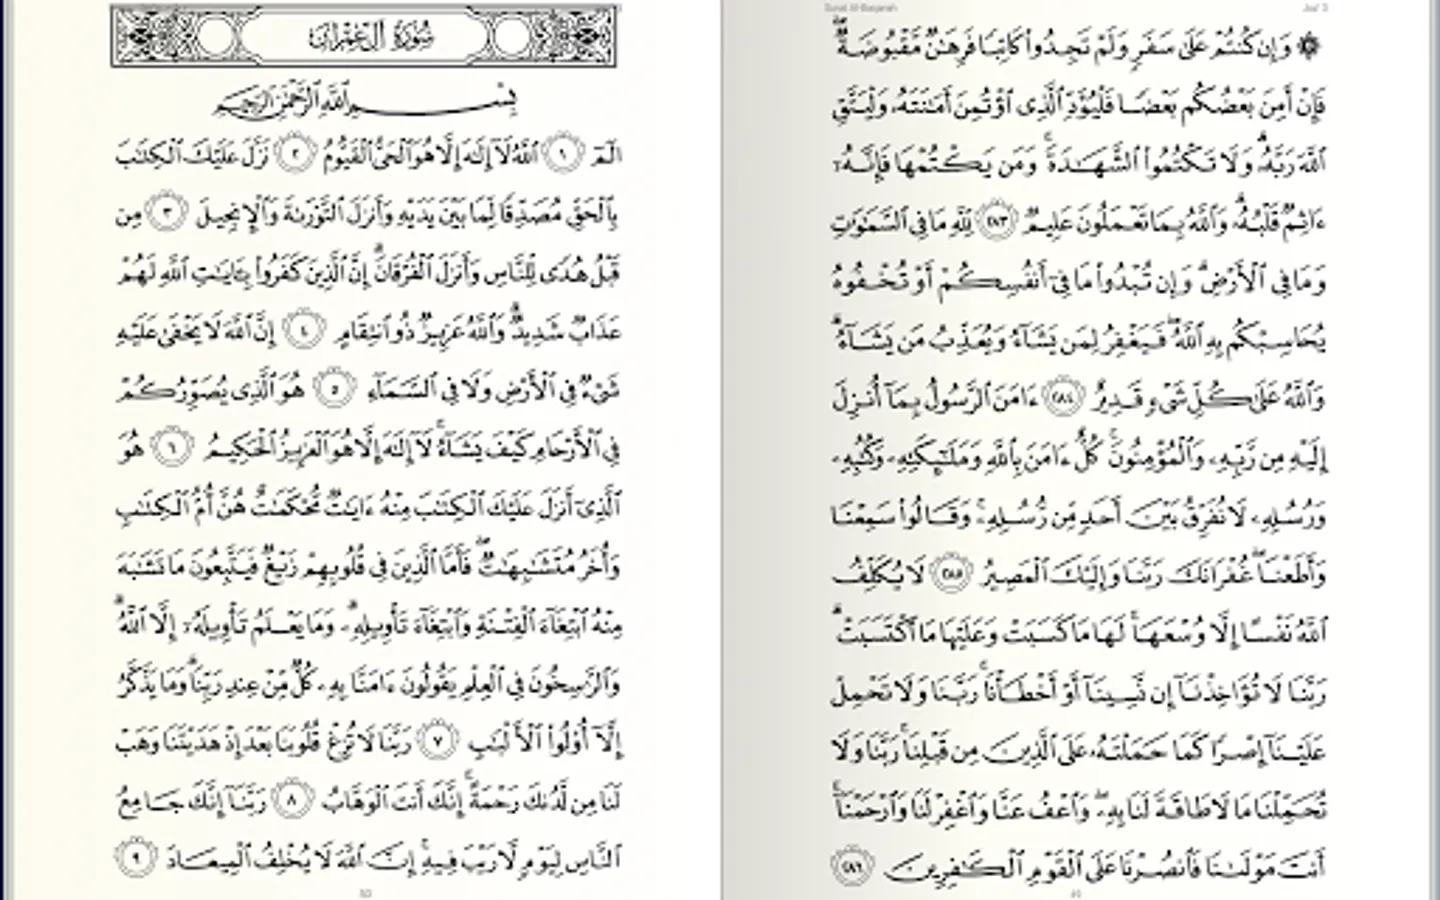 Surat Al-Baqarah
Juz' 3
۞ وَإِن كُنتُمْ عَلَىٰ سَفَرٍ وَلَمْ تَجِدُوا۟ كَاتِبًا فَرِهَٰنٌ مَّقْبُوضَةٌ ۖ
فَإِنْ أَمِنَ بَعْضُكُم بَعْضًا فَلْيُؤَدِّ ٱلَّذِى ٱؤْتُمِنَ أَمَٰنَتَهُۥ وَلْيَتَّقِ
ٱللَّهَ رَبَّهُۥ ۗ وَلَا تَكْتُمُوا۟ ٱلشَّهَٰدَةَ ۚ وَمَن يَكْتُمْهَا فَإِنَّهُۥٓ
ءَاثِمٌ قَلْبُهُۥ ۗ وَٱللَّهُ بِمَا تَعْمَلُونَ عَلِيمٌ ٢٨٣ لِّلَّهِ مَا فِى ٱلسَّمَٰوَٰتِ
وَمَا فِى ٱلْأَرْضِ ۗ وَإِن تُبْدُوا۟ مَا فِىٓ أَنفُسِكُمْ أَوْ تُخْفُوهُ
يُحَاسِبْكُم بِهِ ٱللَّهُ ۖ فَيَغْفِرُ لِمَن يَشَآءُ وَيُعَذِّبُ مَن يَشَآءُ ۗ
وَٱللَّهُ عَلَىٰ كُلِّ شَىْءٍ قَدِيرٌ ٢٨٤ ءَامَنَ ٱلرَّسُولُ بِمَآ أُنزِلَ
إِلَيْهِ مِن رَّبِّهِۦ وَٱلْمُؤْمِنُونَ ۚ كُلٌّ ءَامَنَ بِٱللَّهِ وَمَلَٰٓئِكَتِهِۦ وَكُتُبِهِۦ
وَرُسُلِهِۦ لَا نُفَرِّقُ بَيْنَ أَحَدٍ مِّن رُّسُلِهِۦ ۚ وَقَالُوا۟ سَمِعْنَا
وَأَطَعْنَا ۖ غُفْرَانَكَ رَبَّنَا وَإِلَيْكَ ٱلْمَصِيرُ ٢٨٥ لَا يُكَلِّفُ
ٱللَّهُ نَفْسًا إِلَّا وُسْعَهَا ۚ لَهَا مَا كَسَبَتْ وَعَلَيْهَا مَا ٱكْتَسَبَتْ ۗ
رَبَّنَا لَا تُؤَاخِذْنَآ إِن نَّسِينَآ أَوْ أَخْطَأْنَا ۚ رَبَّنَا وَلَا تَحْمِلْ
عَلَيْنَآ إِصْرًا كَمَا حَمَلْتَهُۥ عَلَى ٱلَّذِينَ مِن قَبْلِنَا ۚ رَبَّنَا وَلَا
تُحَمِّلْنَا مَا لَا طَاقَةَ لَنَا بِهِۦ ۖ وَٱعْفُ عَنَّا وَٱغْفِرْ لَنَا وَٱرْحَمْنَآ ۚ
أَنتَ مَوْلَىٰنَا فَٱنصُرْنَا عَلَى ٱلْقَوْمِ ٱلْكَٰفِرِينَ ٢٨٦
سُورَةُ آلِ عِمْرَانَ
بِسْمِ ٱللَّهِ ٱلرَّحْمَٰنِ ٱلرَّحِيمِ
الٓمٓ ١ ٱللَّهُ لَآ إِلَٰهَ إِلَّا هُوَ ٱلْحَىُّ ٱلْقَيُّومُ ٢ نَزَّلَ عَلَيْكَ ٱلْكِتَٰبَ
بِٱلْحَقِّ مُصَدِّقًا لِّمَا بَيْنَ يَدَيْهِ وَأَنزَلَ ٱلتَّوْرَىٰةَ وَٱلْإِنجِيلَ ٣ مِن
قَبْلُ هُدًى لِّلنَّاسِ وَأَنزَلَ ٱلْفُرْقَانَ ۗ إِنَّ ٱلَّذِينَ كَفَرُوا۟ بِـَٔايَٰتِ ٱللَّهِ لَهُمْ
عَذَابٌ شَدِيدٌ ۗ وَٱللَّهُ عَزِيزٌ ذُو ٱنتِقَامٍ ٤ إِنَّ ٱللَّهَ لَا يَخْفَىٰ عَلَيْهِ
شَىْءٌ فِى ٱلْأَرْضِ وَلَا فِى ٱلسَّمَآءِ ٥ هُوَ ٱلَّذِى يُصَوِّرُكُمْ
فِى ٱلْأَرْحَامِ كَيْفَ يَشَآءُ ۚ لَآ إِلَٰهَ إِلَّا هُوَ ٱلْعَزِيزُ ٱلْحَكِيمُ ٦ هُوَ
ٱلَّذِىٓ أَنزَلَ عَلَيْكَ ٱلْكِتَٰبَ مِنْهُ ءَايَٰتٌ مُّحْكَمَٰتٌ هُنَّ أُمُّ ٱلْكِتَٰبِ
وَأُخَرُ مُتَشَٰبِهَٰتٌ ۖ فَأَمَّا ٱلَّذِينَ فِى قُلُوبِهِمْ زَيْغٌ فَيَتَّبِعُونَ مَا تَشَٰبَهَ
مِنْهُ ٱبْتِغَآءَ ٱلْفِتْنَةِ وَٱبْتِغَآءَ تَأْوِيلِهِۦ ۗ وَمَا يَعْلَمُ تَأْوِيلَهُۥٓ إِلَّا ٱللَّهُ ۗ
وَٱلرَّٰسِخُونَ فِى ٱلْعِلْمِ يَقُولُونَ ءَامَنَّا بِهِۦ كُلٌّ مِّنْ عِندِ رَبِّنَا ۗ وَمَا يَذَّكَّرُ
إِلَّآ أُو۟لُوا۟ ٱلْأَلْبَٰبِ ٧ رَبَّنَا لَا تُزِغْ قُلُوبَنَا بَعْدَ إِذْ هَدَيْتَنَا وَهَبْ
لَنَا مِن لَّدُنكَ رَحْمَةً ۚ إِنَّكَ أَنتَ ٱلْوَهَّابُ ٨ رَبَّنَآ إِنَّكَ جَامِعُ
ٱلنَّاسِ لِيَوْمٍ لَّا رَيْبَ فِيهِ ۚ إِنَّ ٱللَّهَ لَا يُخْلِفُ ٱلْمِيعَادَ ٩
50